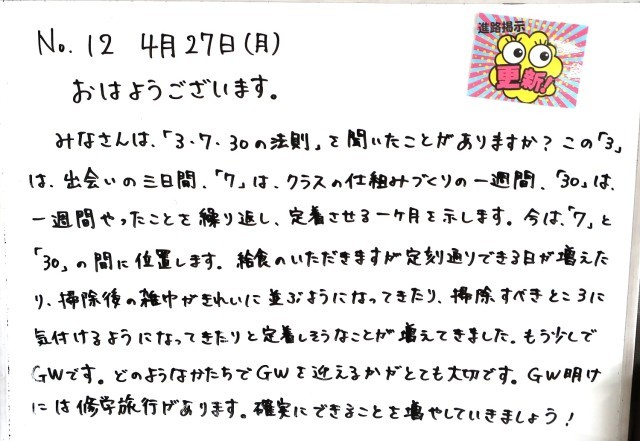 No. 12 4月27日(月)
進路掲示
更新!
おはようございます。
みなさんは、「3・7・30の法則」を聞いたことがありますか?この「3」
は、出会いの三日間、「7」は、クラスの仕組みづくりの一週間、「30」は、
一週間やったことを繰り返し、定着させる一ヶ月を示します。今は、「7」と
「30」の間に位置します。給食のいただきますが定刻通りできる日が増えた
り、掃除後の雑巾がきれいに並ぶようになってきたり、掃除すべきところに
気付けるようになってきたりと定着しそうなことが増えてきました。もう少しで
GWです。どのようなかたちでGWを迎えるかがとても大切です。GW明け
には修学旅行があります。確実にできることを増やしていきましょう!